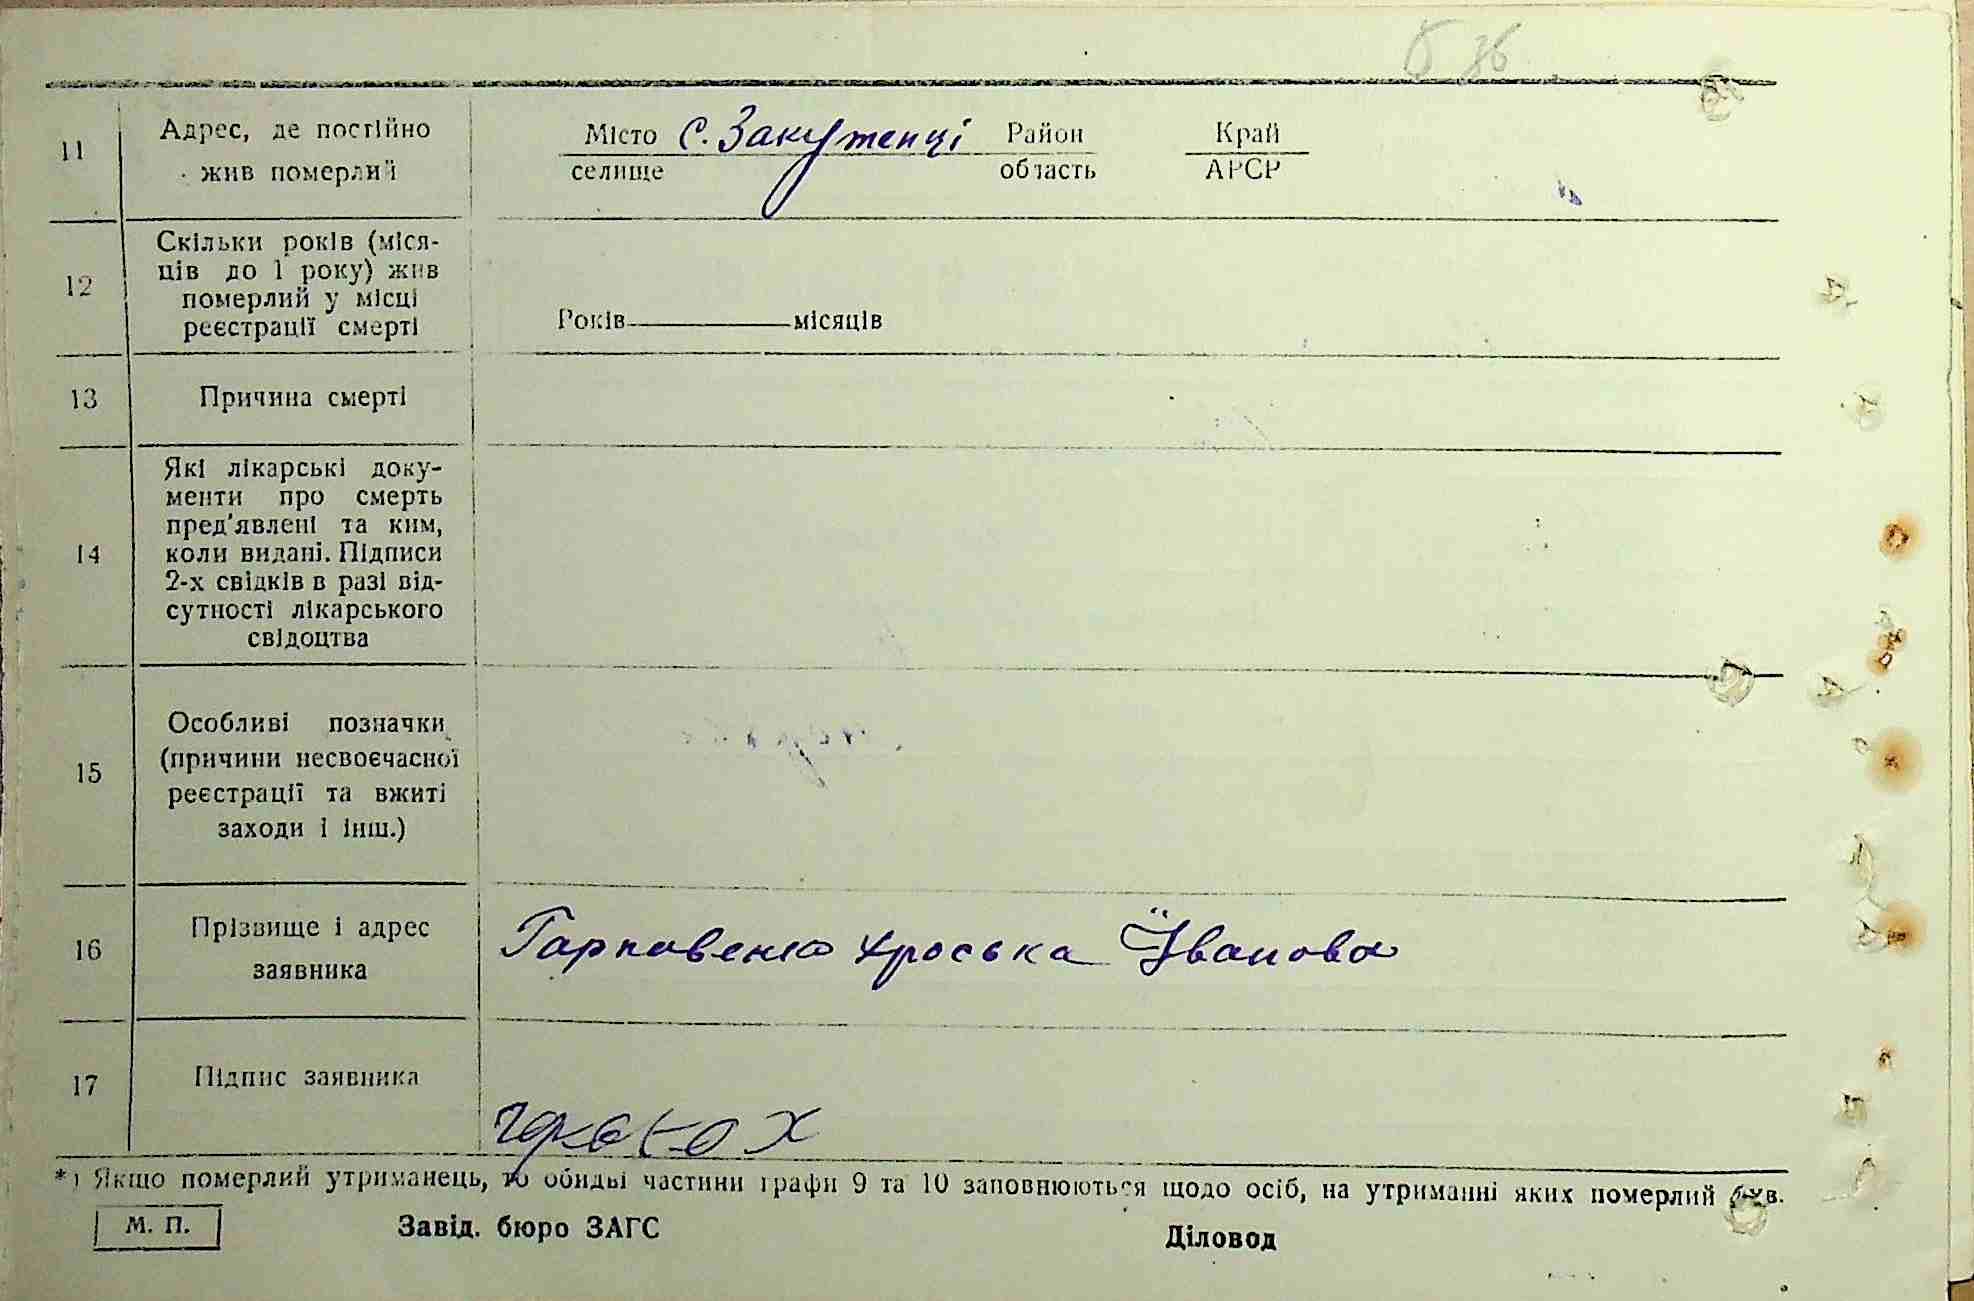 11
Адрес, де постійно
жив померлий
Місто с. Закутенці Район Край
селище область АРСР
12
Скільки років (міся-
ців до 1 року) жив
померлий у місці
реєстрації смерті
Років місяців
13
Причина смерті
14
Які лікарські доку-
менти про смерть
пред'явлені та ким,
коли видані. Підписи
2-х свідків в разі від-
сутності лікарського
свідоцтва
15
Особливі позначки
(причини несвоєчасної
реєстрації та вжиті
заходи і інш.)
16
Прізвище і адрес
заявника
Іванова
17
Підпис заявника
*) Якщо померлий утриманець, то обидві частини графи 9 та 10 заповнюються щодо осіб, на утриманні яких померлий був.
М. П. Завід. бюро ЗАГС Діловод